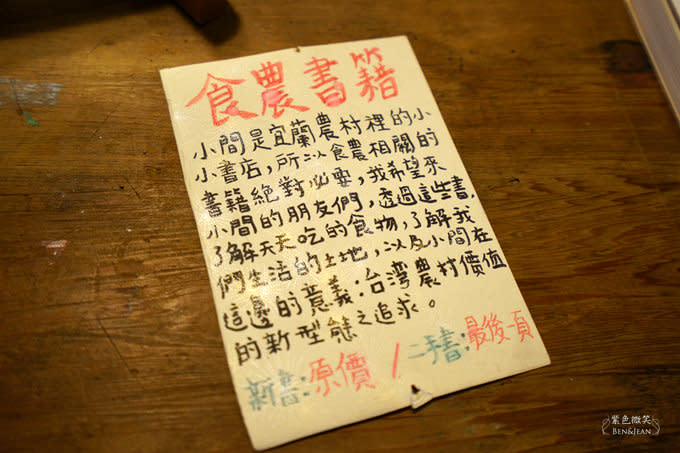 食農書籍
小間是宜蘭農村裡的小
小書店，所以食農相關的
書籍絕對必要，我希望來
小間的朋友們，透過這些書，
了解天天吃的食物，了解我
們生活的土地，以及小間在
這邊的意義：台灣農村價值
的新型態之追求。
新書：原價 / 二手書：最後一頁
紫色微笑
BEN&JEAN